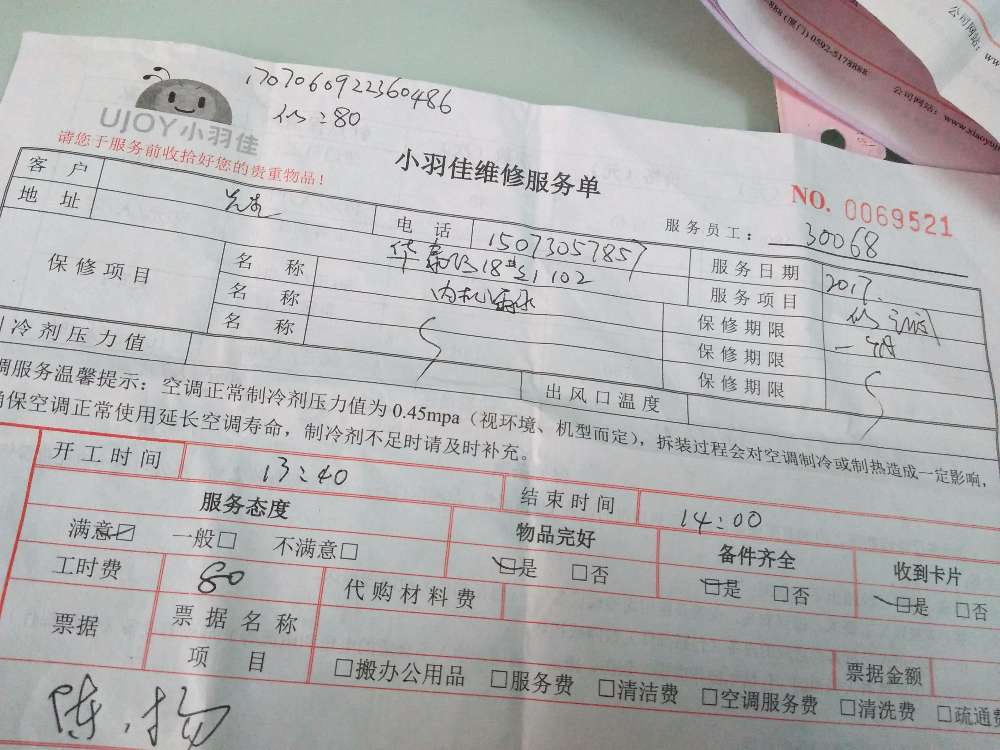 888 (厦门) 0592-5178888
公司网站：
公司网站：www.xiaoyuj
1707060922360486
UJOY小羽佳
请您于服务前收拾好您的贵重物品！
小羽佳维修服务单
NO. 0069521
服务员工： 30068
客 户
电 话 15073057857
服务日期 2017.
地 址
18# 102
服务项目
保修项目
名 称 内机漏水
保修期限
名 称
保修期限
名 称
保修期限
冷剂压力值
出风口温度
调服务温馨提示：空调正常制冷剂压力值为 0.45mpa（视环境、机型而定），拆装过程会对空调制冷或制热造成一定影响，
确保空调正常使用延长空调寿命，制冷剂不足时请及时补充。
开工时间 13:40
结束时间 14:00
服务态度
物品完好
备件齐全
收到卡片
满意☑ 一般□ 不满意□
☑是 □否
☑是 □否
☑是 □否
工时费 80
代购材料费
票据
票据名称
项 目
□搬办公用品 □服务费 □清洁费 □空调服务费 □清洗费 □疏通费
票据金额